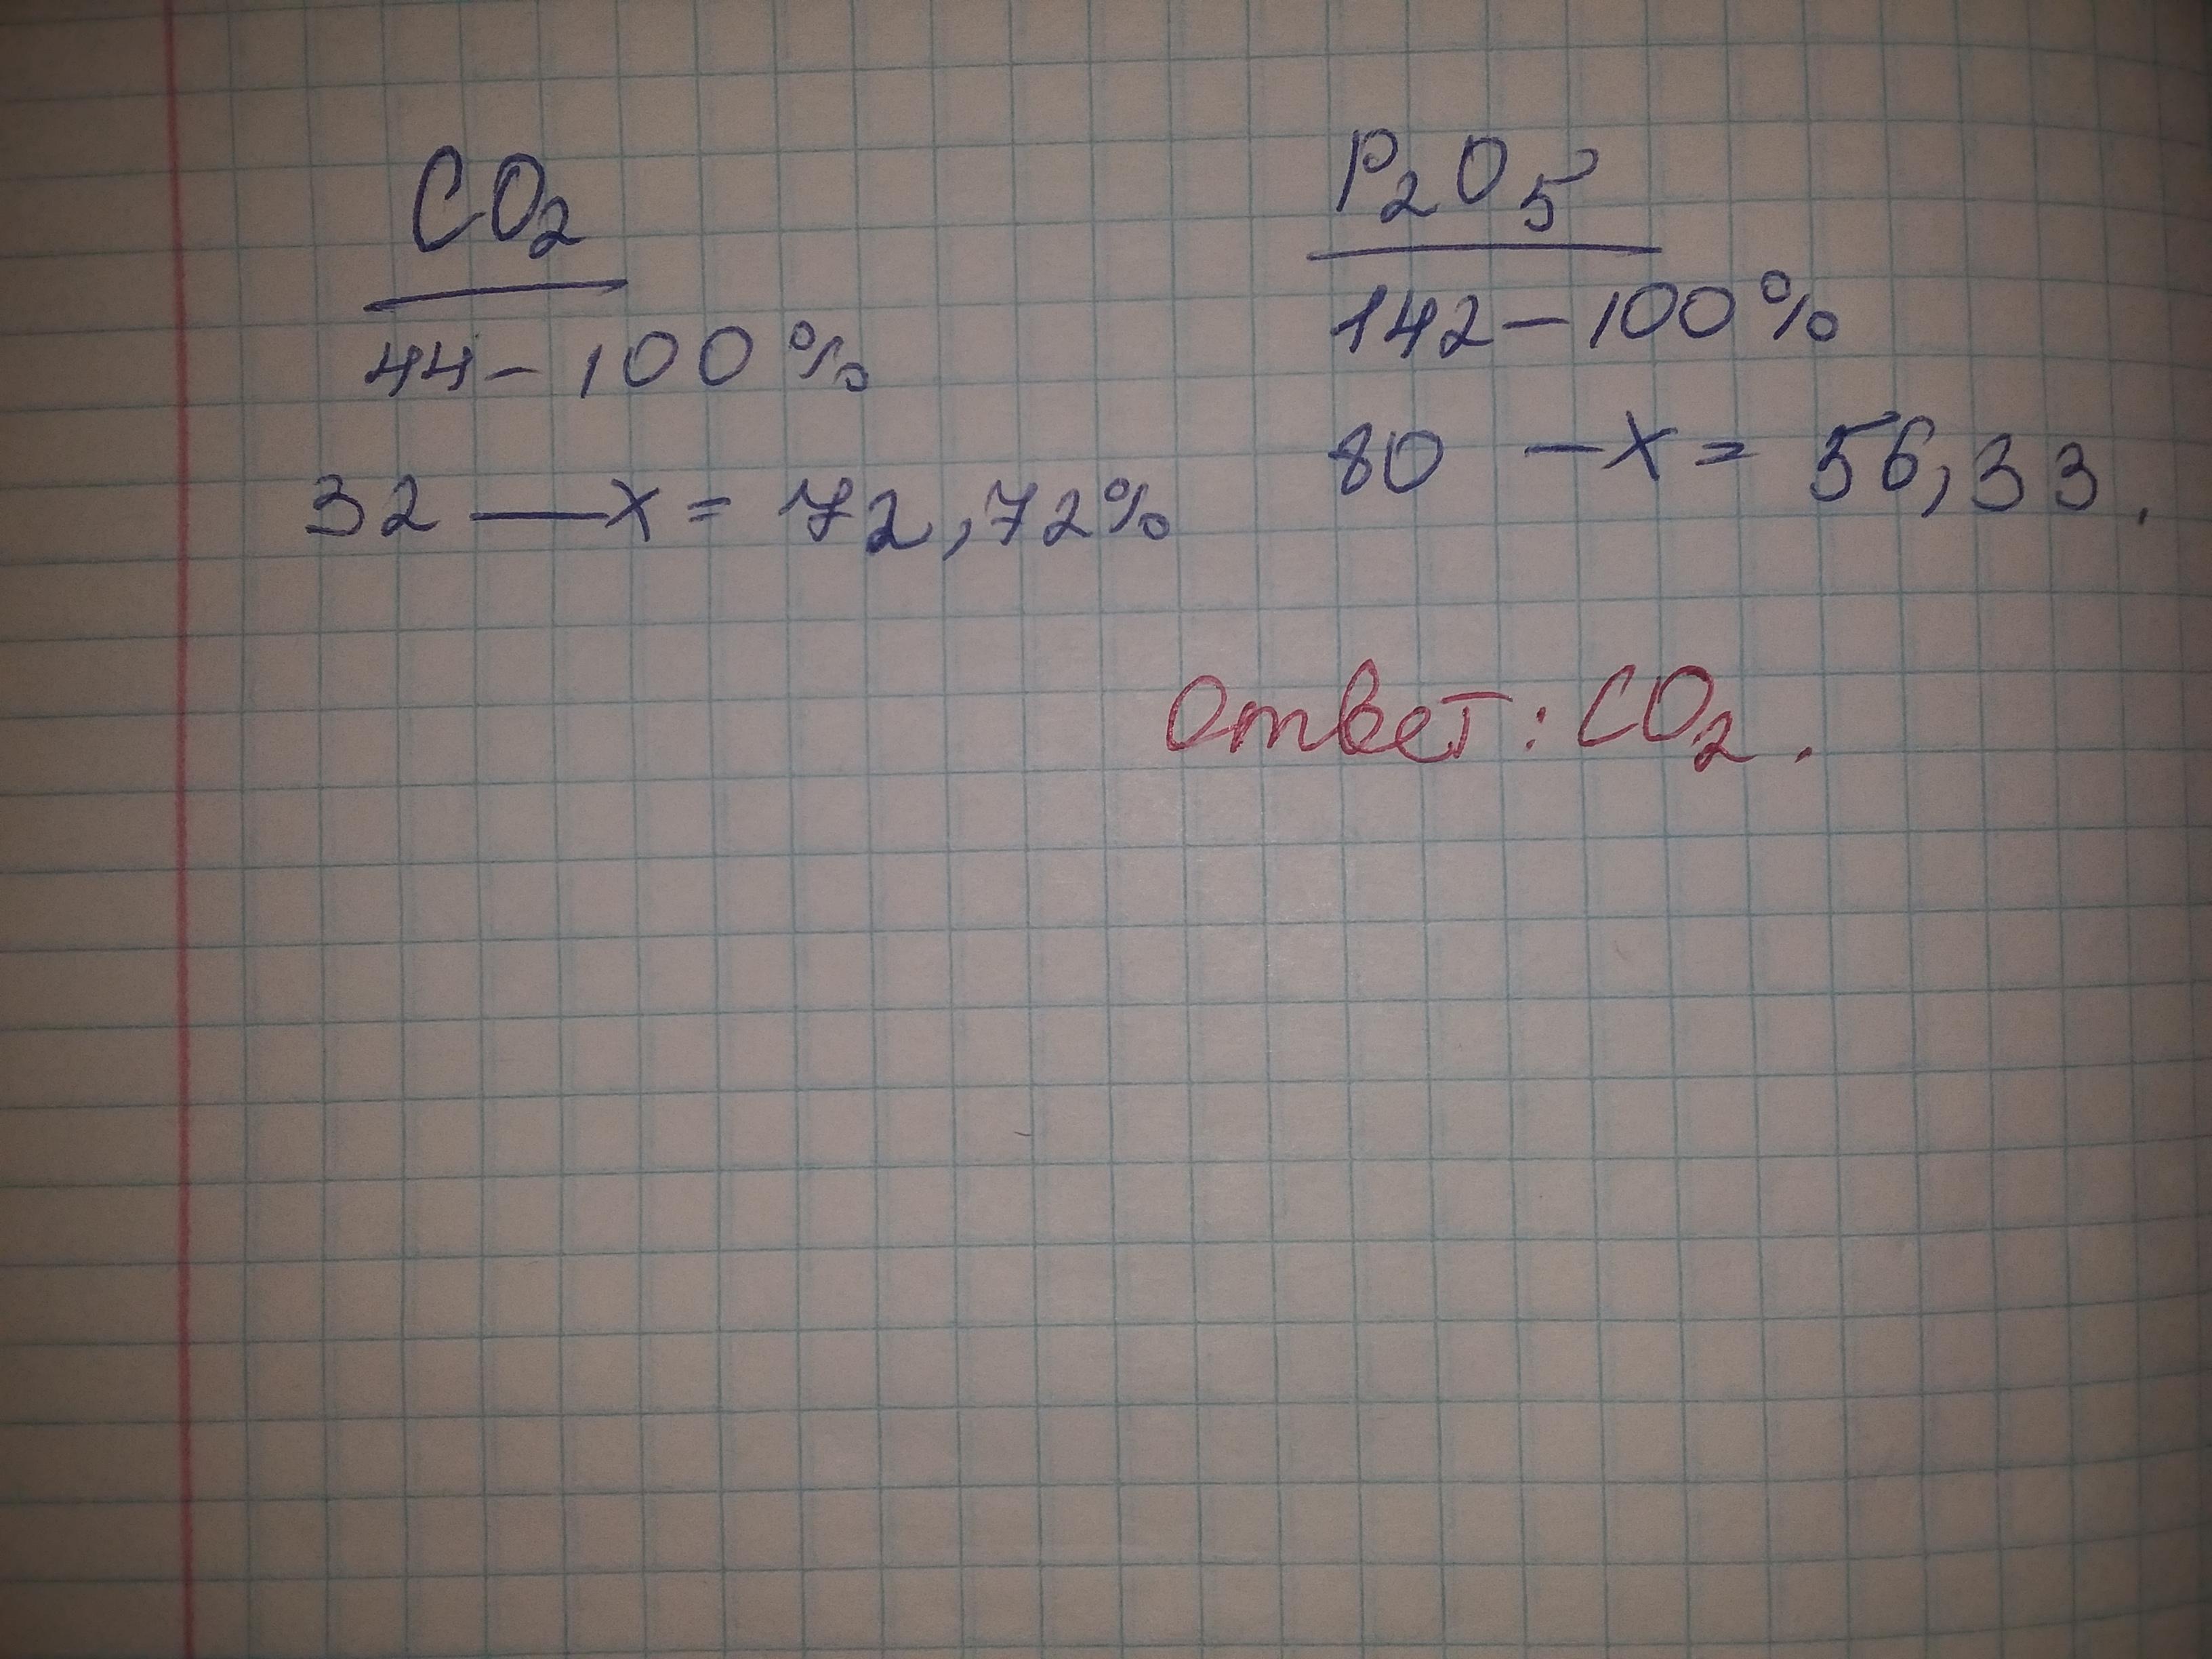 CO₂
44 - 100%
32 — x = 72,72%
P₂O₅
142 - 100%
80 - x = 56,33.
Ответ: CO₂.